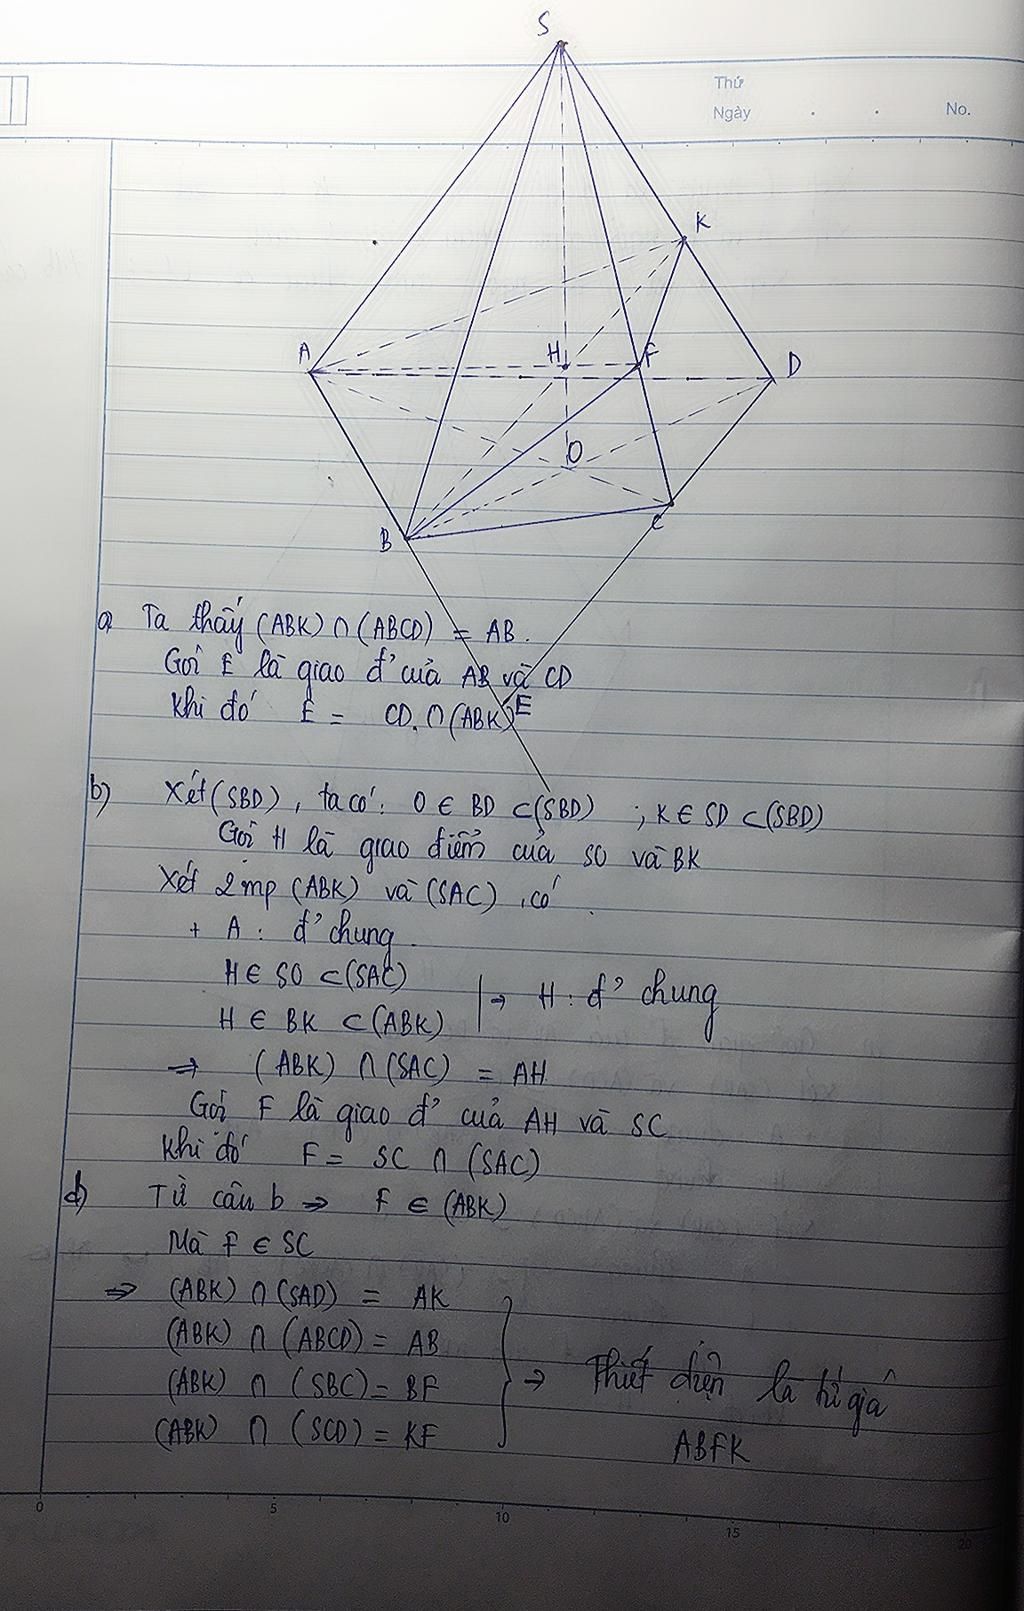 S
Thứ
Ngày . . No.
K
A H F D
O
B C
a, Ta thấy (ABK) ∩ (ABCD) = AB.
Gọi E là giao đ' của AB và CD
Khi đó E = CD ∩ (ABK)
E
b) Xét (SBD), ta có: O ∈ BD ⊂ (SBD) ; K ∈ SD ⊂ (SBD)
Gọi H là giao điểm của SO và BK
Xét 2 mp (ABK) và (SAC), có
+ A : đ' chung.
H ∈ SO ⊂ (SAC)
H ∈ BK ⊂ (ABK) → H : đ' chung
⇒ (ABK) ∩ (SAC) = AH
Gọi F là giao đ' của AH và SC
Khi đó F = SC ∩ (SAC)
d) Từ câu b ⇒ F ∈ (ABK)
Mà F ∈ SC
⇒ (ABK) ∩ (SAD) = AK
(ABK) ∩ (ABCD) = AB
(ABK) ∩ (SBC) = BF
(ABK) ∩ (SCD) = KF
→ Thiết diện là tứ giác
ABFK
0 5 10 15 20